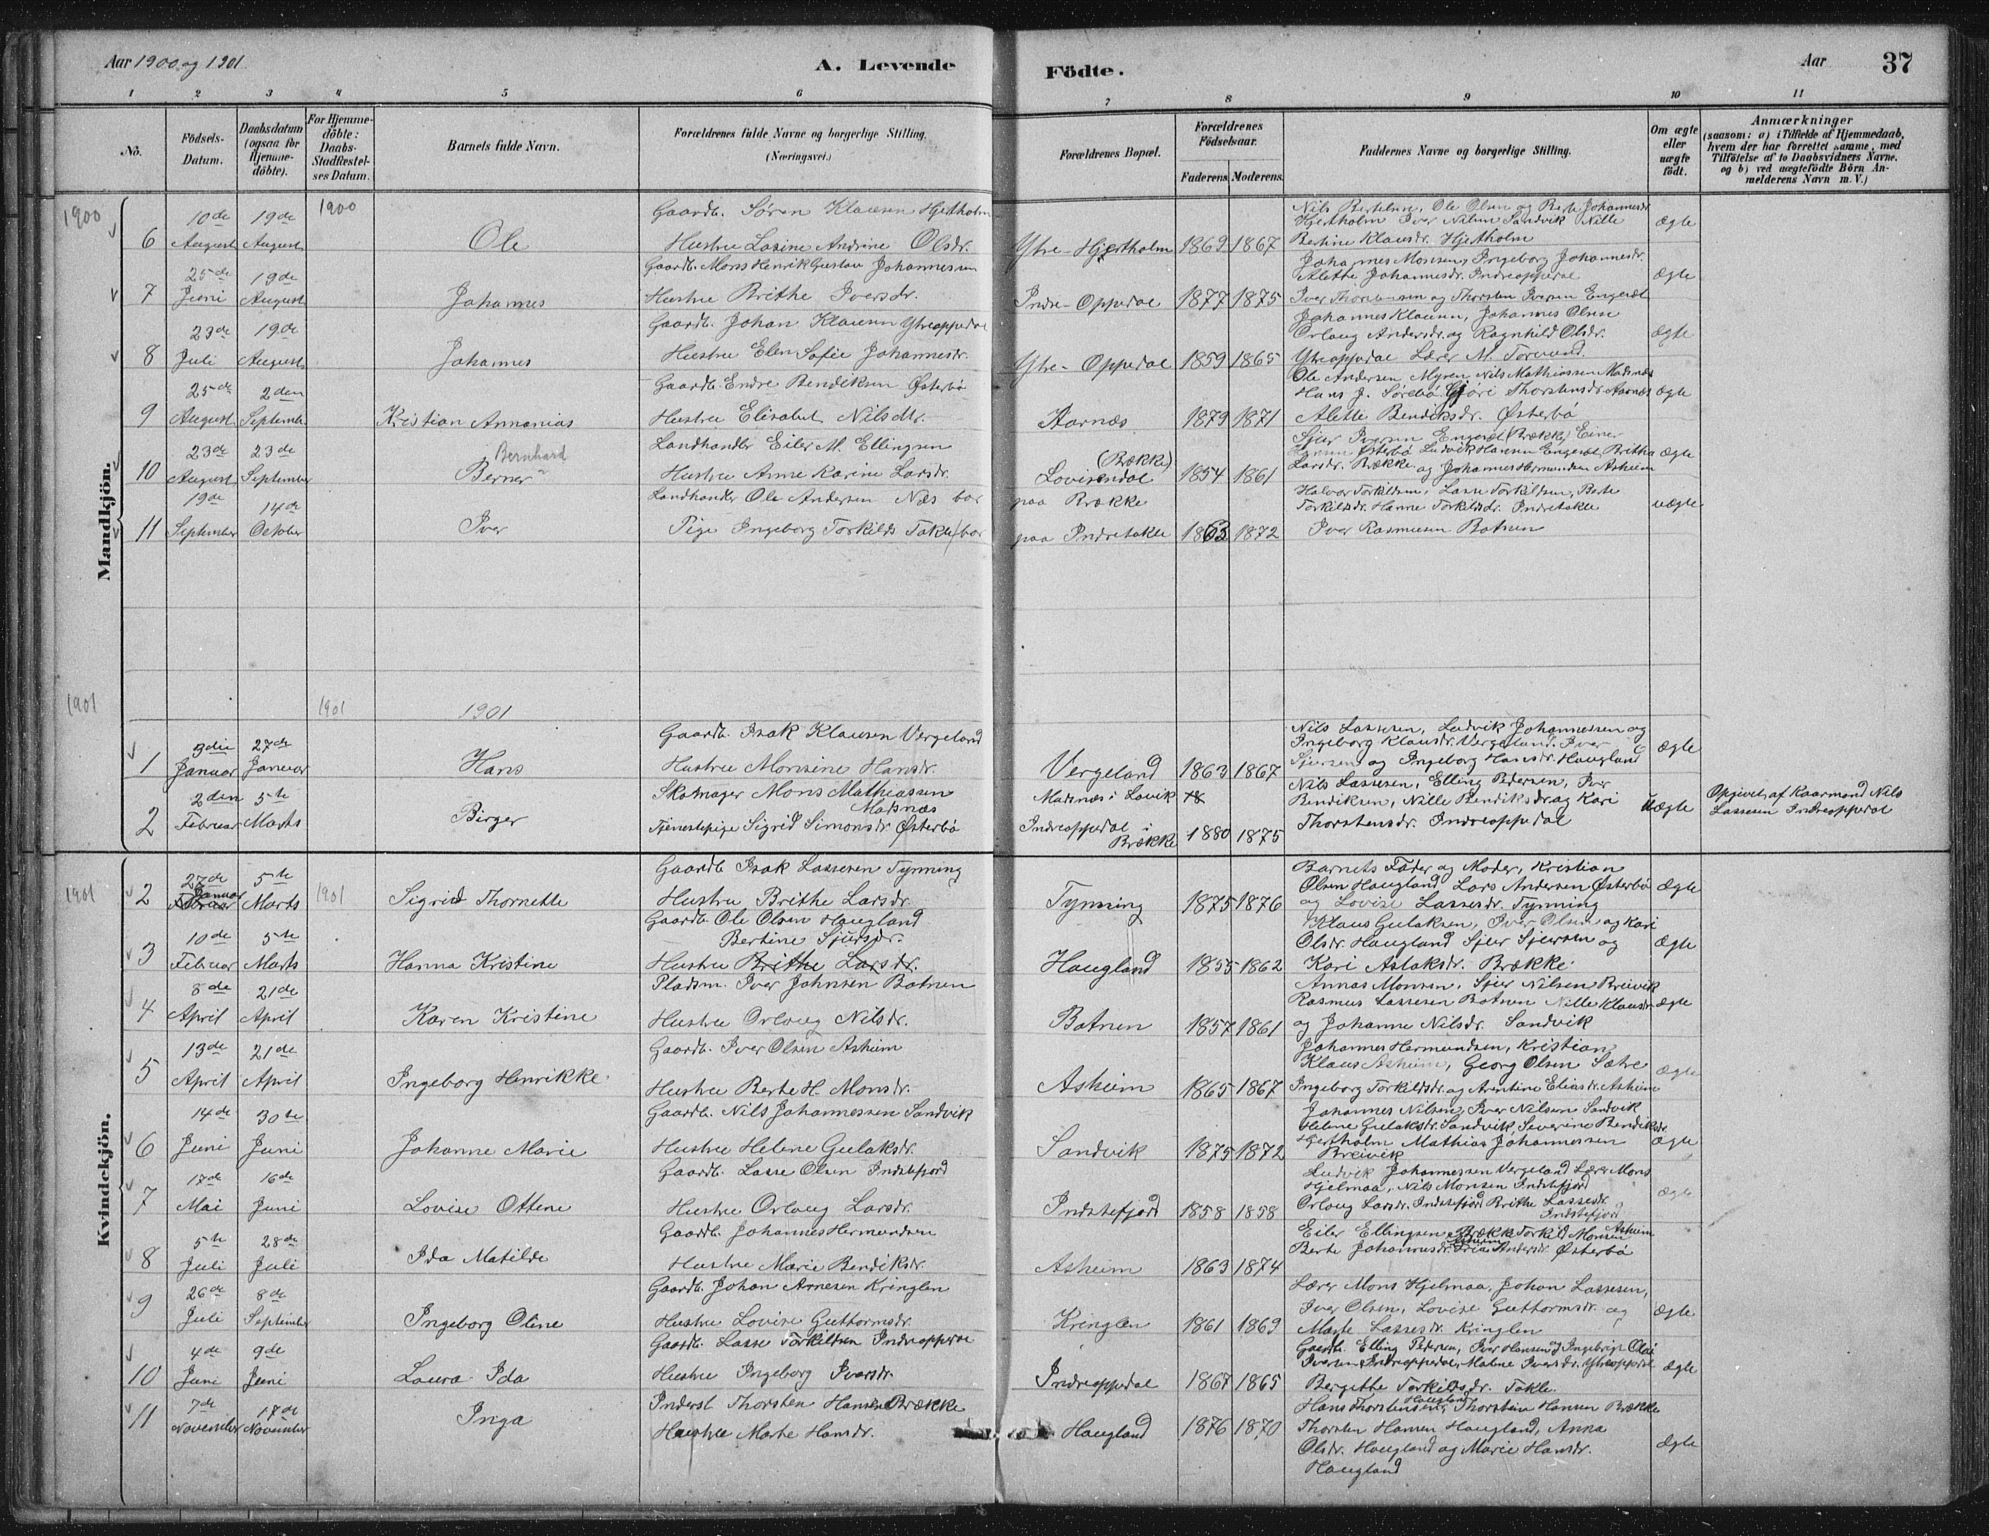 Aar 1900 og 1901.
A. Levende Födte.
Aar 37
1 2 3 4 5 6 7 8 9 10 11
No.
Födsels-Datum.
Daabsdatum (ogsaa for Hjemme-döbte).
For Hjemme-döbte: Daabs-Stadfæstel-ses Datum.
Barnets fulde Navn.
Forældrenes fulde Navne og borgerlige Stilling.
(Næringsvei.)
Forældrenes Bopæl.
Forældrenes Födselsaar.
Faderens. Moderens.
Faddernes Navne og borgerlige Stilling.
Om ægte eller uægte födt.
Anmærkninger
(saasom: a) i Tilfælde af Hjemmedaab,
hvem der har forrettet samme, med
Tilföielse af to Daabsvidners Navne.
og b) ved uægtefödte Börn An-
melderens Navn m. V.)
Mandkjön.
1900 1900
6 10de August 19de August Ole
Gaardb. Sören Klausen Hjertholm
Hustru Lasine Andrine Olsdr.
Ytre-Hjertholm 1869 1867
Nils Bertelsen, Ole Olsen og Berte Johannesdr.
Hjertholm Iver Nilsen Sandvik Nille
Bertine Klausdr. Hjertholm
ægte
7 25de Juni 19de August Johannes
Gaardb. Mons Henrik Gustav Johannessen
Hustru Brithe Iversdr.
Indre-Oppedal 1877 1875
Johannes Monsen, Ingeborg Johannesdr.
Alethe Johannesdr. Indreoppedal
Iver Thorstensen og Thorsten Iversen Engesæt
ægte
8 23de Juli 19de August Johannes
Gaardb. Johan Klausen Ytreoppedal
Hustru Elen Sofie Johannesdr.
Ytre-Oppedal 1859 1865
Johannes Klausen, Johannes Olsen
Orloug Andersdr. og Ragnhild Olsdr.
Ytreoppedal Lærer M. Torvund.
ægte
9 25de August 2den September Kristian Annanias
Gaardb. Endre Bendiksen Østerbö
Hustru Elisabet Nilsdtr.
Aarnæs 1879 1871
Ole Andersen Myren Nils Mathiassen Madsnæs
Hans J. Sörebö Gjöri Thorstensdr. Aarnæs
Alette Bendiksdr. Østerbö
ægte
10 23de August 23de September Berner Bernhard
Landhandler Eiler M. Ellingsen
Hustru Anne Karine Larsdr.
(Brække) Lovisendal 1854 1861
Sjur Iversen Engesæt (Brække) Einer
Hansen Østerbö Ludvik Hansen Engesæt Brithe
Larsdr. Brække og Johannes Hermundsen Asheim
ægte
11 19de September 14de October Iver
Landhandler Ole Andersen Næs bor
Pige Ingeborg Torkilds Takle bor
paa Brække
paa Indretakle 1863 1872
Halvor Torkildsen, Lasse Torkildsen, Berte
Torkildsdr. Hanne Torkildsdr. Indretakle
Iver Rasmussen Botnen
uægte
1901 1901 1901
1 3die Januar 27de Januar Hans
Gaardb. Isak Klausen Vergeland
Hustru Monsine Hansdr.
Vergeland 1863 1867
Nils Lassesen, Ludvik Johannessen og
Ingeborg Klausdr. Vergeland. Iver
Sjursen og Ingeborg Hansdr. Haugland
ægte
2 2den Februar 5te Marts Birger
Skomager Mons Mathiassen Madsnæs
Tjenestepige Sigrid Simonsdr. Østerbö
Madsnæs i Lavik 18
Indreoppedal i Brække 1880 1875
Nils Lassesen, Elling Pedersen, Iver
Bendiksen, Nille Bendiksdr. og Kari
Thorstensdr. Indreoppedal
Uægte
Opgivet af Kaarmand Nils
Lassesen Indreoppedal
Kvindekjön.
1901 1901
2 27de Januar Februar 5te Marts Sigrid Thornette
Gaardb Isak Lassesen Tynning
Hustru Brithe Larsdr.
Tynning 1875 1876
Barnets Fader og Moder, Kristian
Olsen Haugland Lars Andersen Østerbö
og Lovise Lassesdr. Tynning
ægte
3 10de Februar 5te Marts Hanna Kristine
Gaardb. Ole Olsen Haugland
Bertine Sjursdr.
Hustru Brithe Larsdr.
Haugland 1855 1862
Klaus Gulaksen, Iver Olsen og Kari
Olsdr. Haugland Sjur Sjursen og
Kari Aslaksdr. Brække
ægte
4 8de April 21de April Karen Kristine
Pladsm. Iver Johnsen Botnen
Hustru Orloug Nilsdr.
Botnen 1857 1861
Annas Monsen, Sjur Nilsen Breivik
Rasmus Lassesen Botnen Nille Klausdr.
og Johanne Nilsdr. Sandvik
ægte
5 13de April 21de April Ingeborg Henrikke
Gaardb. Iver Olsen Asheim
Hustru Berte H. Monsdr.
Asheim 1865 1867
Johannes Hermundsen, Kristian
Klaus Asheim, Georg Olsen Sætre
Ingeborg Torkildsdr. og Arentine Eliasdr. Asheim
ægte
6 14de Juni 30te Juni Johanne Marie
Gaardb. Nils Johannessen Sandvik
Hustru Helene Gulaksdr.
Sandvik 1875 1872
Johannes Nilsen, Iver Nilsen Sandvik
Helene Gulaksdr. Sandvik, Severine Bendiksdr.
Hjertholm Mathias Johannessen
Breivik
ægte
7 17de Mai 16de Juni Lovise Ottene
Gaardb. Lasse Olsen Indstefjord
Hustru Orloug Larsdr.
Indstefjord 1858 1858
Ludvik Johannessen Vergeland Lærer Mons
Hjelmaa, Nils Monsen Indstefjord
Orloug Larsdr. Indstefjord Brithe Lassesdr.
Indstefjord
ægte
8 5te Juli 28de Juli Ida Matilde
Gaardb. Johannes Hermundsen
Hustru Marie Bendiksdr.
Asheim 1863 1874
Eiler Ellingsen Brække Torkild Monsen Asheim
Berte Johannesdr. Asheim Andersdr. Østerbö
9 26de Juli 8de September Ingeborg Oline
Gaardb. Johan Arnesen Kringlen
Hustru Lovise Guttormsdr.
Kringlen 1861 1869
Lærer Mons Hjelmaa, Johan Lassesen,
Iver Olsen, Lovise Guttormsdr. og
Marte Lassesdr. Kringlen
ægte
10 4de Juni 9de Juni Laura Ida
Gaardb. Lasse Torkildsen Indreoppedal
Hustru Ingeborg Iversdr.
Indreoppedal 1867 1865
Gaardb. Elling Pedersen, Iver Hansen og Ingebrigt Olai
Iversen Indreoppedal, Malene Iversdr. Ytreoppedal
Bergithe Torkildsdr. Takle.
ægte
11 7de November 17de November Inga
Inderst Thorsten Hansen Brække
Hustru Marte Hansdr.
Haugland 1876 1870
Hans Thorstensen, Haugland Thorstein Hansen Brække
Thorsten Hansen Haugland, Anna
Olsdr. Haugland og Marie Hansdr.
Haugland
ægte